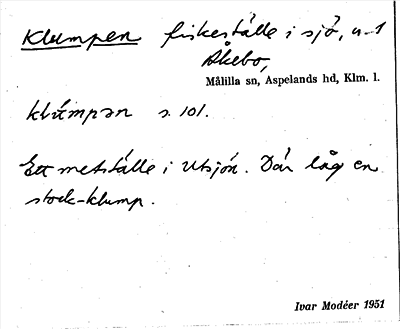 Klumpen fiskeställe i sjö, n 1
Åkebo,
Målilla sn, Aspelands hd, Klm. l.
klúmpən s. 101.
Ett metställe i Utsjön. Där låg en
stock-klump.
Ivar Modéer 1951